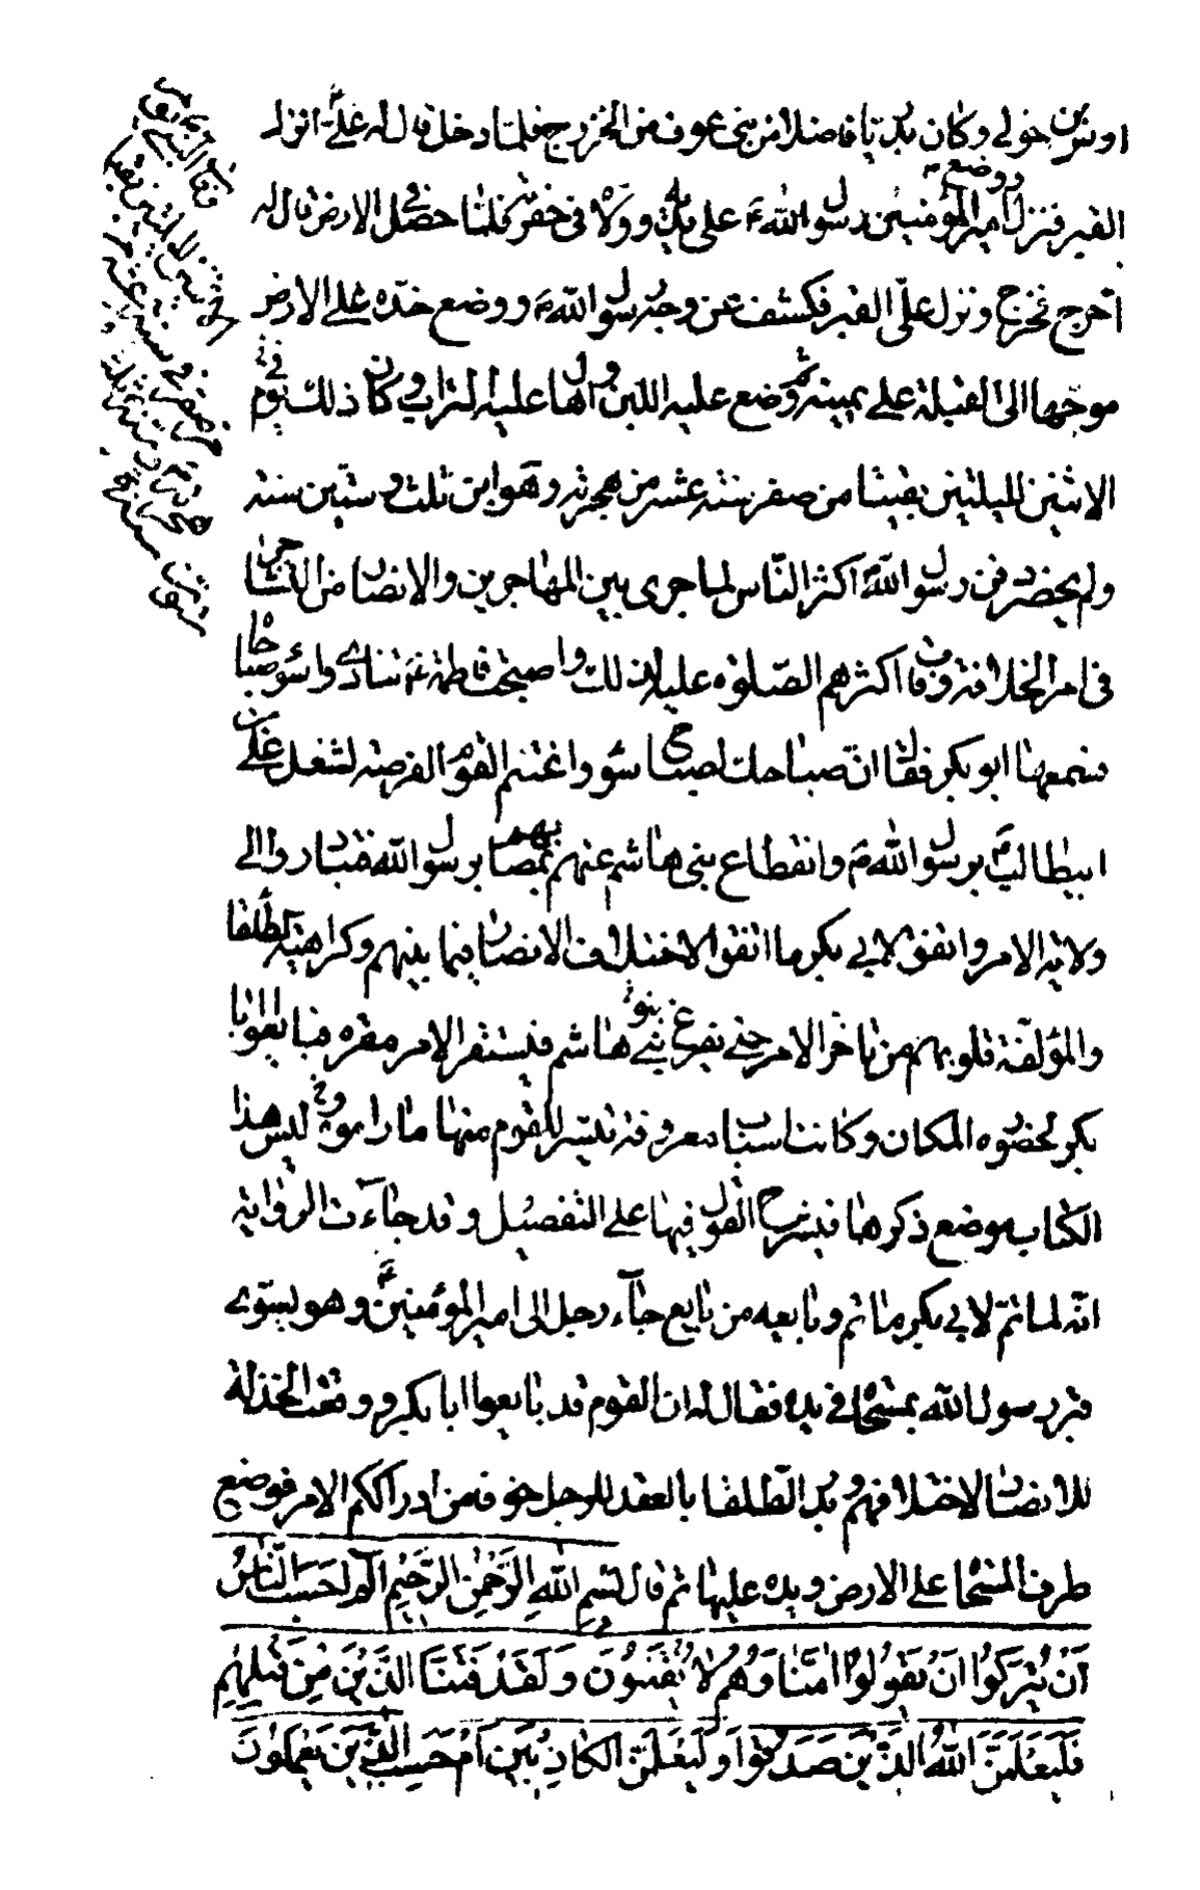 اوس بن خولي وكان بدريا فاضلا من بني عوف من الخزرج فلما دخل قال له علي ع انزل
القبر فنزل ووضع امير المؤمنين رسول الله ص على يديه وولاه في حفرته فلما حصل في الارض قال له
اخرج فخرج ونزل علي القبر فكشف عن وجه رسول الله ص ووضع خده على الارض
موجها الى القبلة على يمينه ثم وضع عليه اللبن واهال عليه التراب وكان ذلك في يوم
الاثنين لليلتين بقيتا من صفر سنة عشر من هجرته وهو ابن ثلث وستين سنة
ولم يحضر دفن رسول الله ص اكثر الناس لما جرى بين المهاجرين والانصار من التشاجر
في امر الخلافة وفات اكثرهم الصلوة عليه لذلك واصبحت فاطمة ع تنادي واسوء صباحاه
فسمعها ابو بكر فقال ان صباحك لصباح سوء واغتنم القوم الفرصة لشغل علي بن
ابيطالب ع برسول الله ص وانقطاع بني هاشم عنهم بمصابهم برسول الله فتبادروا الى
ولاية الامر واتفق لابي بكر ما اتفق لاختلاف الانصار فيما بينهم وكراهية الطلقا
والمؤلفة قلوبهم من تاخر الامر حتى يفرغ بنو هاشم فيستقر الامر مقره فبايعوا ابا
بكر لحضوره المكان وكانت اسباب معروفة تيسر للقوم منها ما راموه وليس هذا
الكتاب موضع ذكرها فيشرح القول فيها على التفصيل وقد جاءت الرواية
انه لما تم لابي بكر ما تم وبايعه من بايع جاء رجل الى امير المؤمنين ع وهو يسوي
قبر رسول الله بمسحاة في يده فقال له ان القوم قد بايعوا ابا بكر ووقعت الخذلة
للانصار لاختلافهم وبدر الطلقا بالعقد للرجل خوفا من ادراككم الامر فوضع
طرف المسحاة على الارض ويده عليها ثم قال بِسْمِ اللهِ الرَّحْمٰنِ الرَّحِيْمِ الٓم اَحَسِبَ النَّاسُ
اَنْ يُتْرَكُوا اَنْ يَقُولُوا اٰمَنَّا وَهُمْ لَا يُفْتَنُونَ وَلَقَدْ فَتَنَّا الَّذِيْنَ مِنْ قَبْلِهِمْ
فَلَيَعْلَمَنَّ اللهُ الَّذِيْنَ صَدَقُوا وَلَيَعْلَمَنَّ الْكَاذِبِيْنَ اَمْ حَسِبَ الَّذِيْنَ يَعْمَلُوْنَ